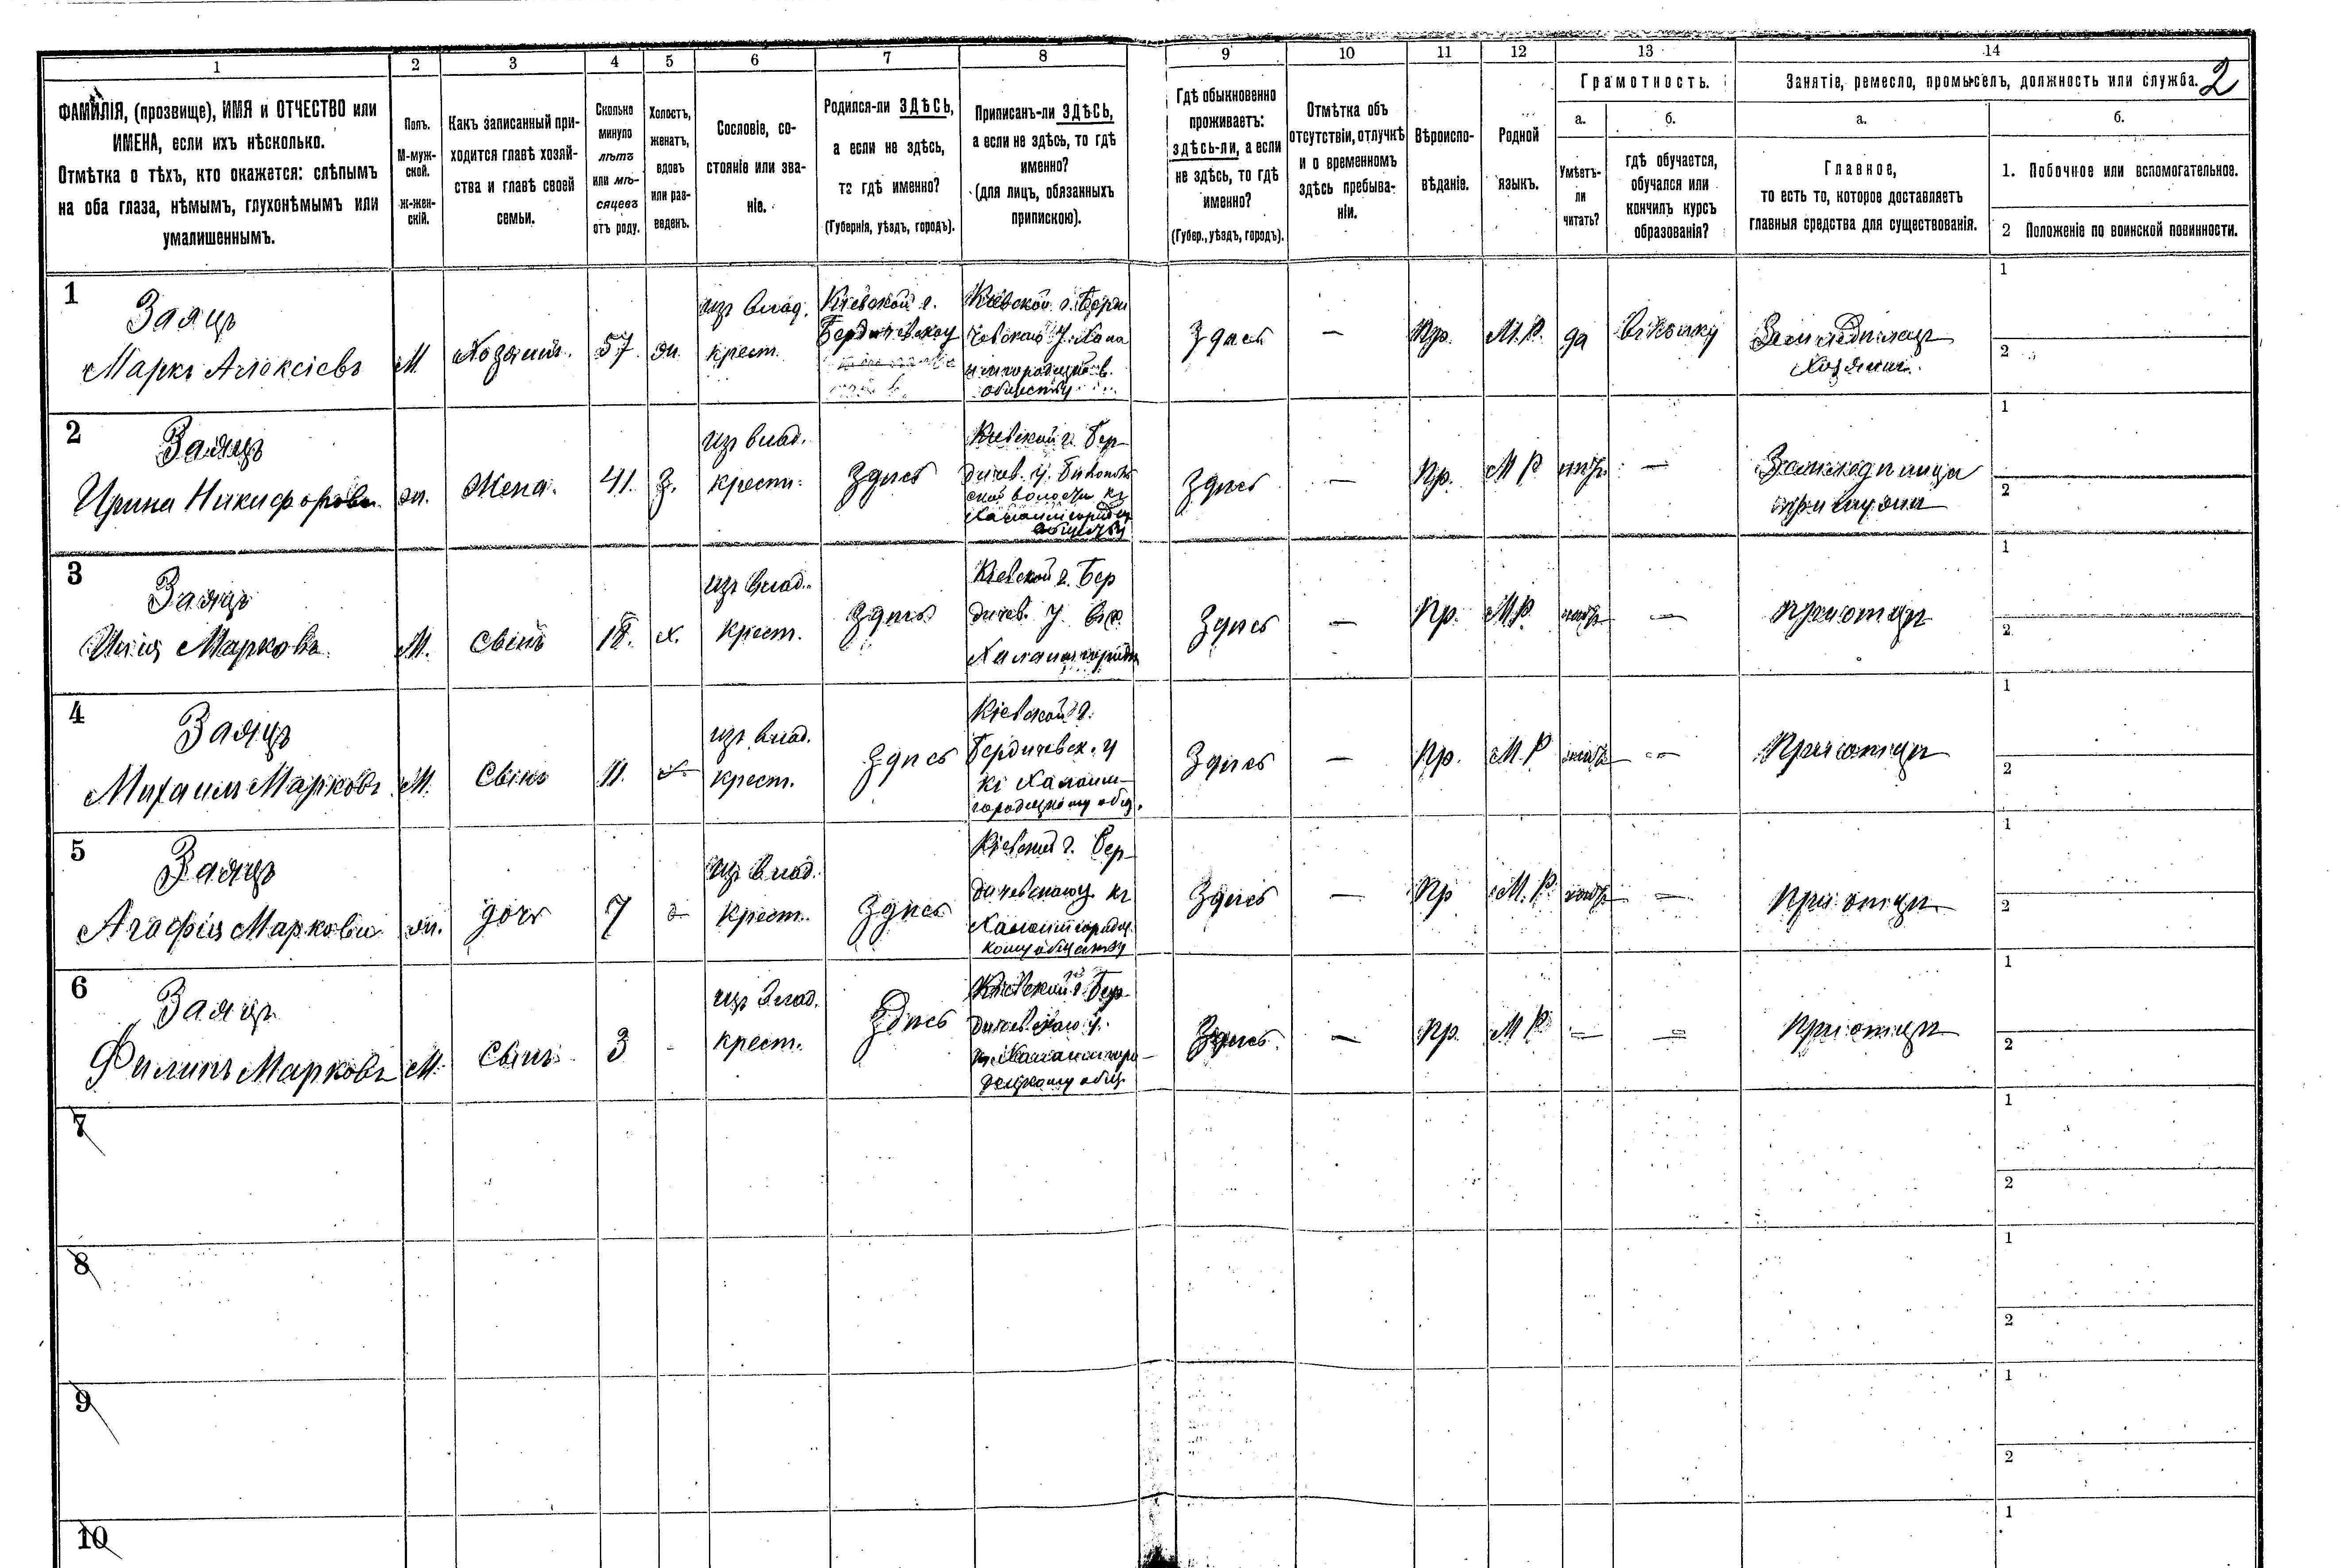 1
2
3
4
5
6
7
8
9
10
11
12
13
14
ФАМИЛІЯ, (прозвище), ИМЯ и ОТЧЕСТВО или
ИМЕНА, если ихъ нѣсколько.
Отмѣтка о тѣхъ, кто окажется: слѣпымъ
на оба глаза, нѣмымъ, глухонѣмымъ или
умалишеннымъ.
Полъ.
М-муж-
ской.
Ж-жен-
скій.
Какъ записанный при-
ходится главѣ хозяй-
ства и главѣ своей
семьи.
Сколько
минуло
лѣтъ
или мѣ-
сяцевъ
отъ роду.
Холостъ,
женатъ,
вдовъ
или раз-
веденъ.
Сословіе, со-
стояніе или зва-
ніе.
Родился-ли ЗДѢСЬ,
а если не здѣсь,
то гдѣ именно?
(Губернія, уѣздъ, городъ).
Приписанъ-ли ЗДѢСЬ,
а если не здѣсь, то гдѣ
именно?
(для лицъ, обязанныхъ
припискою).
Гдѣ обыкновенно
проживаетъ:
здѣсь-ли, а если
не здѣсь, то гдѣ
именно?
(Губер., уѣздъ, городъ).
Отмѣтка объ
отсутствіи, отлучкѣ
и о временномъ
здѣсь пребыва-
ніи.
Вѣроиспо-
вѣданіе.
Родной
языкъ.
Грамотность.
а.
Умѣетъ-
ли
читать?
б.
гдѣ обучается,
обучался или
кончилъ курсъ
образованія?
Занятіе, ремесло, промыселъ, должность или служба.
2
а.
Главное,
то есть то, которое доставляетъ
главныя средства для существованія.
б.
1. Побочное или вспомогательное.
2 Положеніе по воинской повинности.
1
Заяцъ
Маркъ Алексіевъ
М
Хозяинъ.
57.
ж.
изъ влад.
крест.
Кіевской г.
Бердичевскаго у
Кіевской г. Берди
чевскаго у.
обществу
Здесь
—
Пр.
М.Р.
да
Землѣделецъ
Хозяинъ.
1
2
2
Заяцъ
Ирина Никифорова
ж.
Жена.
41.
З.
изъ влад.
крест.
Здѣсь
Кіевской г. Бер-
дичев. у.
обществу
Здесь
—
Пр.
М Р
—
1
2
3
Заяцъ
Илія Марковъ.
М.
Сынъ
18.
х.
изъ влад.
крест.
Здѣсь
Кіевской г. Бер
дичев. у.
Здѣсь
—
Пр.
М.Р.
—
при отцѣ
1
2
4
Заяцъ
Михаилъ Марковъ
М.
Сынъ
11.
х.
изъ влад.
крест.
Здѣсь
Кіевской г.
Бердичевск. у
городецкому общ.
Здѣсь
—
Пр.
М.Р
—
При отцѣ
1
2
5
Заяцъ
Агафія Маркова
ж.
дочь
7
изъ влад.
крест.
Здѣсь
Кіевской г. Бер-
дичевскаго у. къ
кому обществу
Здѣсь
—
Пр
М.Р.
—
При отцѣ
1
2
6
Заяцъ
Филипъ Марковъ
М.
Сынъ
3
-
изъ влад.
крест.
Здѣсь
Кіевской г. Бер-
дичевскаго у.
децкому общ.
Здѣсь.
—
Пр.
М Р
—
—
При отцѣ
1
2
7
1
2
8
1
2
9
1
2
10
1